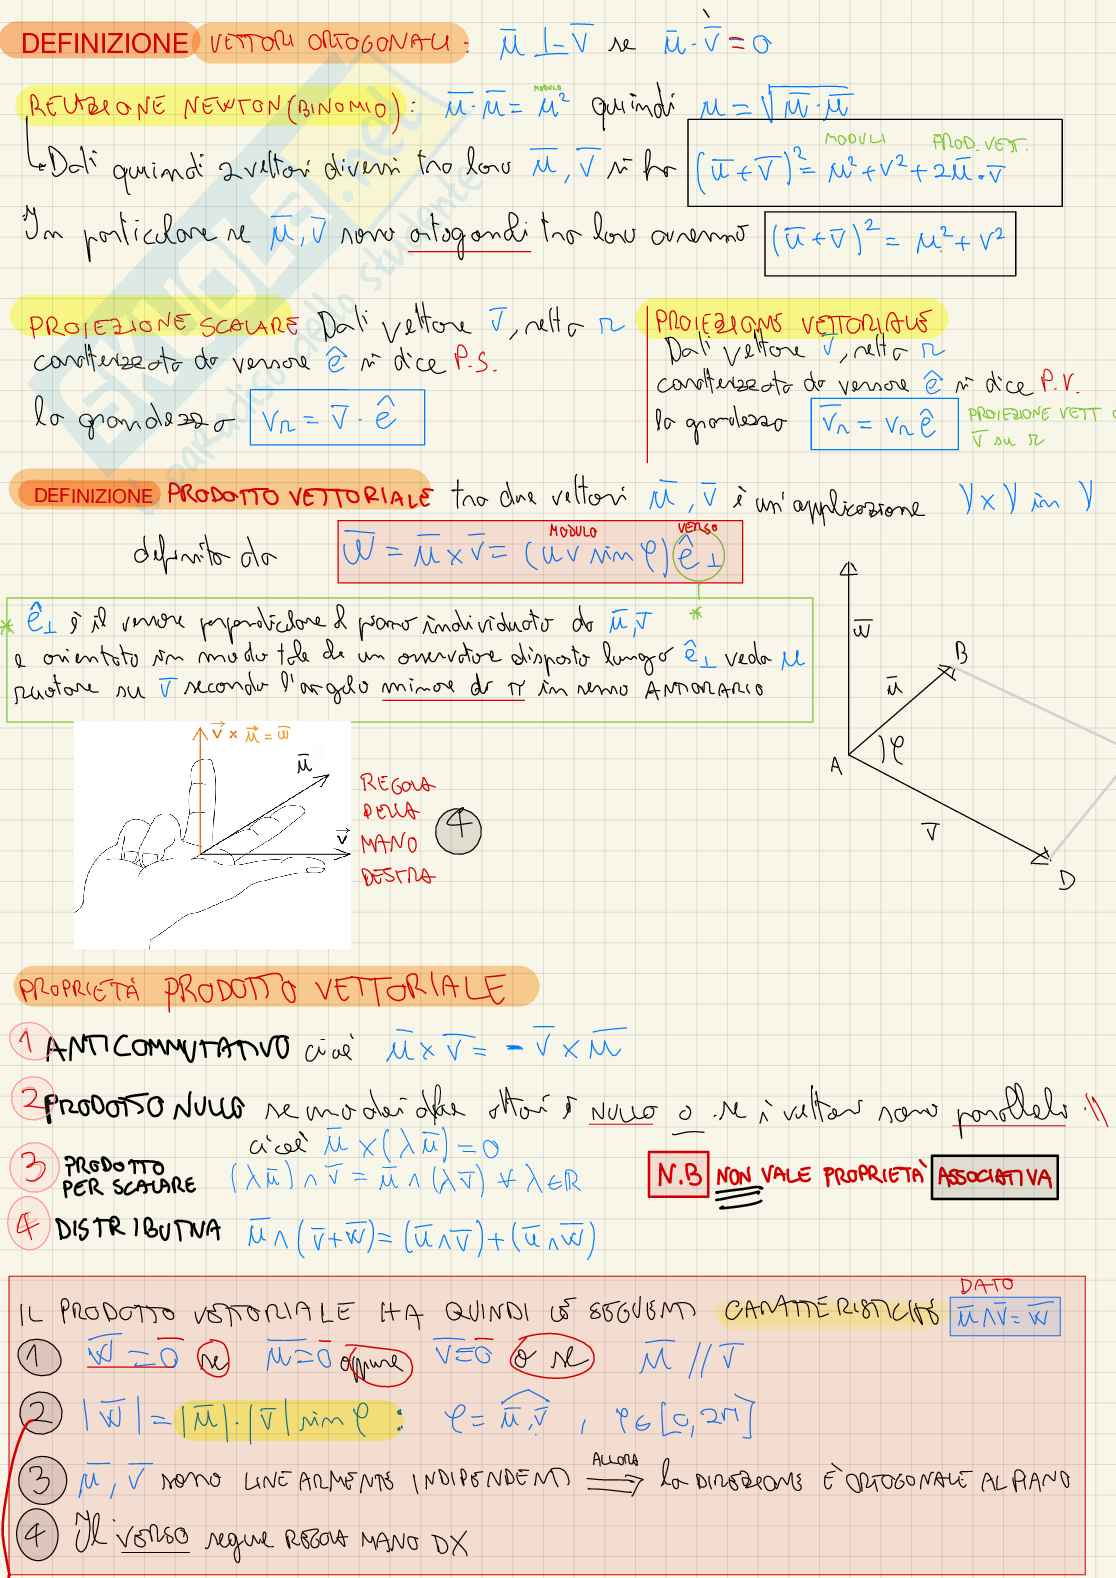 DEFINIZIONE VETTORI ORTOGONALI: ū ⊥ v̄ se ū · v̄ = 0
RELAZIONE NEWTON (BINOMIO): ū · ū = u² quindi u = √ū · ū
MODULO
Dati quindi 2 vettori diversi tra loro ū, v̄ si ha (ū + v̄)² = u² + v² + 2ū · v̄
MODULI PROD. VETT.
In particolare se ū, v̄ sono ortogonali tra loro avremo (ū + v̄)² = u² + v²
PROIEZIONE SCALARE Dati vettore v̄, retta r
caratterizzata da versore ê si dice P.S.
la grandezza vr = v̄ · ê
PROIEZIONE VETTORIALE
Dati vettore v̄, retta r
caratterizzata da versore ê si dice P.V.
la grandezza v̄r = vr ê PROIEZIONE VETT
v̄ su r
DEFINIZIONE PRODOTTO VETTORIALE tra due vettori ū, v̄ è un'applicazione V x V in V
definito da w̄ = ū x v̄ = (u v sin φ) ê⊥
MODULO VERSO
* ê⊥ è il versore perpendicolare al piano individuato da ū, v̄
e orientato in modo tale che un osservatore disposto lungo ê⊥ veda u
ruotare su v̄ secondo l'angolo minore di π in senso ANTIORARIO
*
w̄
B
ū
A
φ
v̄
D
v⃗ x u⃗ = w̄
ū
v⃗
REGOLA
DELLA
MANO
DESTRA
4
PROPRIETÀ PRODOTTO VETTORIALE
1 ANTICOMMUTATIVO cioè ū x v̄ = - v̄ x ū
2 PRODOTTO NULLO se uno dei due è NULLO o se i vettori sono paralleli //
cioè ū x (λū) = 0
3 PRODOTTO
PER SCALARE (λū) ∧ v̄ = ū ∧ (λv̄) ∀ λ∈ℝ
N.B NON VALE PROPRIETÀ ASSOCIATIVA
4 DISTRIBUTIVA ū ∧ (v̄ + w̄) = (ū ∧ v̄) + (ū ∧ w̄)
DATO
IL PRODOTTO VETTORIALE HA QUINDI LE SEGUENTI CARATTERISTICHE ū ∧ v̄ = w̄
1 w̄ = 0̄ se ū = 0̄ oppure v̄ = 0̄ o se ū // v̄
2 |w̄| = |ū| · |v̄| sin φ : φ = ū,v̄ , φ ∈ [0, 2π]
3 ū, v̄ sono LINEARMENTE INDIPENDENTI ⟹ la DIREZIONE È ORTOGONALE AL PIANO
ALLORA
4 Il VERSO segue REGOLA MANO DX